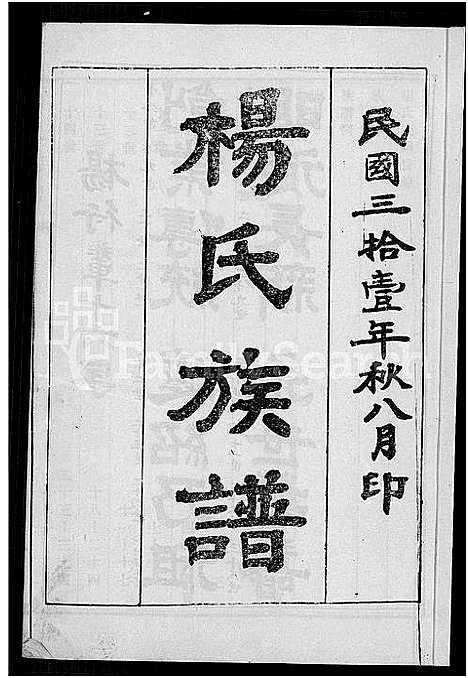 民國三拾壹年秋八月印
楊氏族譜
FamilySearch